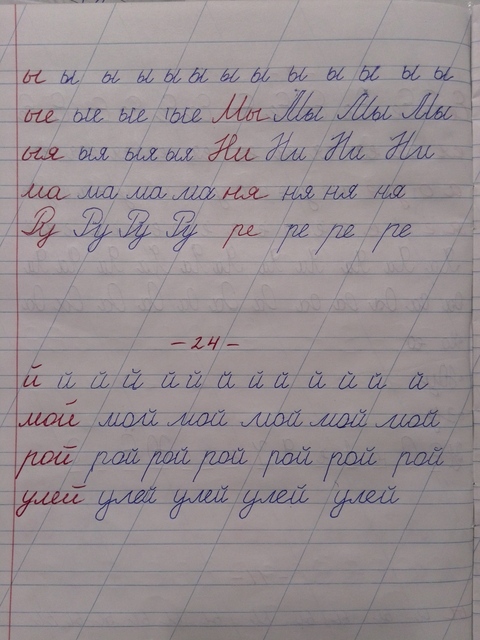 ы ы ы ы ы ы ы ы ы ы ы ы ы
ые ые ые ые Мы Мы Мы Мы
ыя ыя ыя ыя Ни Ни Ни Ни
ма ма ма ма ня ня ня ня
Ру Ру Ру Ру ре ре ре ре
- 24 -
й й й й й й й й й й й й й
мой мой мой мой мой мой
рой рой рой рой рой рой рой
улей улей улей улей улей